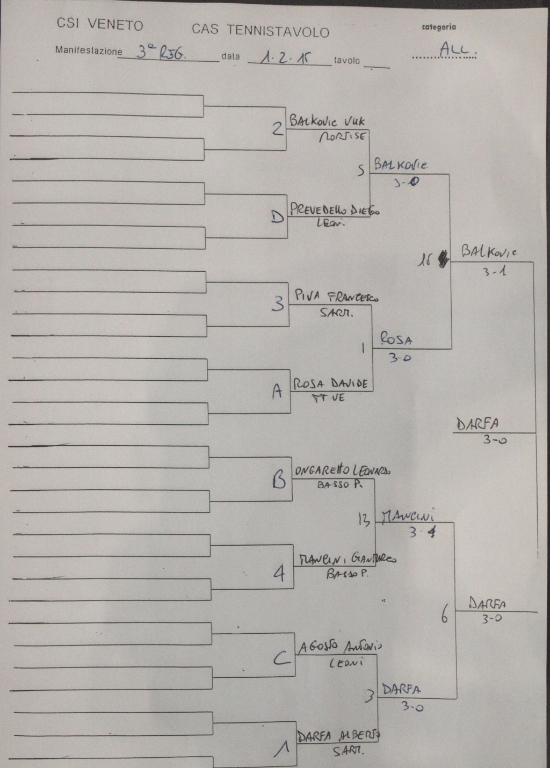 CSI VENETO CAS TENNISTAVOLO categoria
Manifestazione 3ª REG. data 1.2.15 tavolo ALL.
2 BALKOVIC VUK
MORTISE
5 BALKOVIC
3-0
D PREVEDELLO DIEGO
LEONI
16 BALKOVIC
3-1
3 PIVA FRANCESCO
SARM.
1 ROSA
3-0
A ROSA DAVIDE
TT VE
DARFA
3-0
B ONGARETTO LEONARDO
BASSO P.
13 MANCINI
3-1
4 MANCINI GIANMARCO
BASSO P.
6 DARFA
3-0
C AGOSTO ANTONIO
LEONI
3 DARFA
3-0
1 DARFA ALBERTO
SARM.